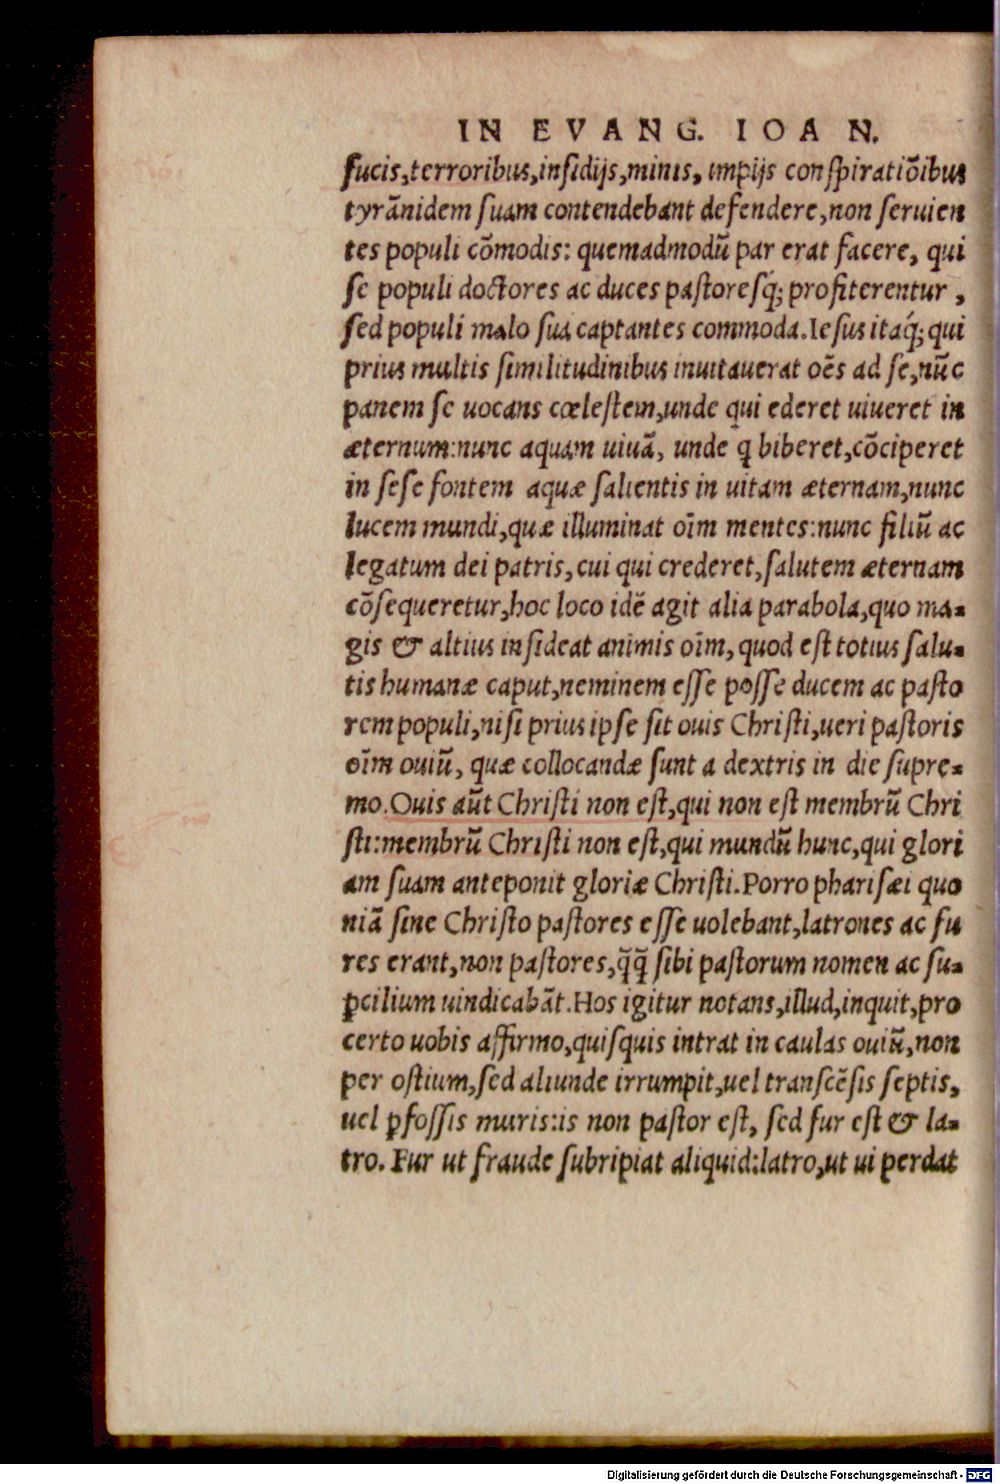 IN EVANG. IOAN.
fucis,terroribus,insidijs,minis, impijs conspiratiõibus
tyrãnidem suam contendebant defendere,non seruien
tes populi cõmodis: quemadmodũ par erat facere, qui
se populi doctores ac duces pastoresq́; profiterentur ,
sed populi malo sua captantes commoda.Iesus itaq́; qui
prius multis similitudinibus inuitauerat oẽs ad se,nũc
panem se uocans cœlestem,unde qui ederet uiueret in
æternum:nunc aquam uiuã, unde q̃ biberet,cõciperet
in sese fontem aquæ salientis in uitam æternam,nunc
lucem mundi,quæ illuminat oĩm mentes:nunc filiũ ac
legatum dei patris,cui qui crederet,salutem æternam
cõsequeretur,hoc loco idẽ agit alia parabola,quo ma-
gis & altius insideat animis oĩm,quod est totius salu-
tis humanæ caput,neminem esse posse ducem ac pasto
rem populi,nisi prius ipse sit ouis Christi,ueri pastoris
oĩm ouiũ, quæ collocandæ sunt a dextris in die supre-
mo.Ouis aũt Christi non est,qui non est membrũ Chri
sti:membrũ Christi non est,qui mundũ hunc,qui glori
am suam anteponit gloriæ Christi.Porro pharisæi quo
niã sine Christo pastores esse uolebant,latrones ac fu
res erant,non pastores,q̃q̃ sibi pastorum nomen ac su-
ꝑcilium uindicabãt.Hos igitur notans,illud,inquit,pro
certo uobis affirmo,quisquis intrat in caulas ouiũ,non
per ostium,sed aliunde irrumpit,uel transcẽsis septis,
uel ꝑfossis muris:is non pastor est, sed fur est & la-
tro. Fur ut fraude subripiat aliquid:latro,ut ui perdat
Digitalisierung gefördert durch die Deutsche Forschungsgemeinschaft - DFG